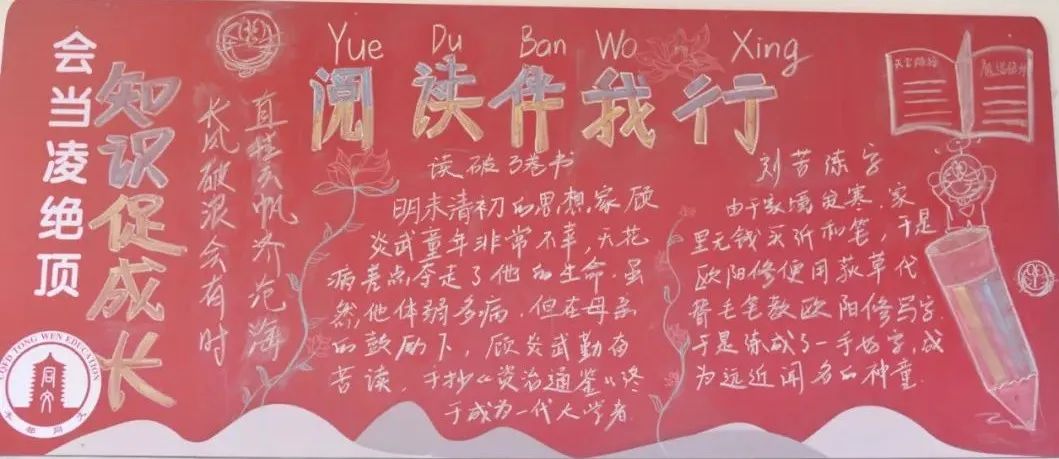 会当凌绝顶
知识促成长
长风破浪会有时
直挂云帆济沧海
Yue Du Ban Wo Xing
阅读伴我行
读破万卷书
明末清初的思想家顾
炎武童年非常不幸,天花
病差点夺走了他的生命.虽
然他体弱多病,但在母亲
的鼓励下,顾炎武勤奋
苦读,手抄《资治通鉴》终
于成为一代大学者.
刘芳练字
由于家境贫寒,家
里无钱买纸和笔,于是
欧阳修便用荻草代
替毛笔教欧阳修写字
于是练成了一手好字,成
为远近闻名的神童.
TONG WEN EDUCATION
同文